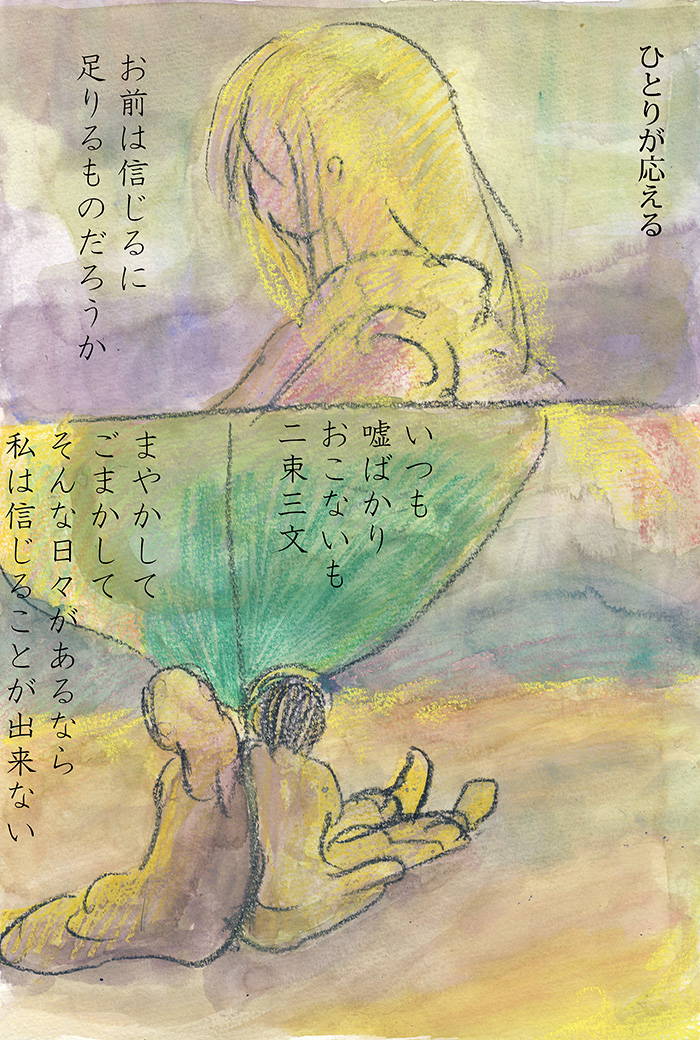 ひとりが応える
お前は信じるに
足りるものだろうか
いつも
嘘ばかり
おこないも
二束三文
まやかして
ごまかして
そんな日々があるなら
私は信じることが出来ない